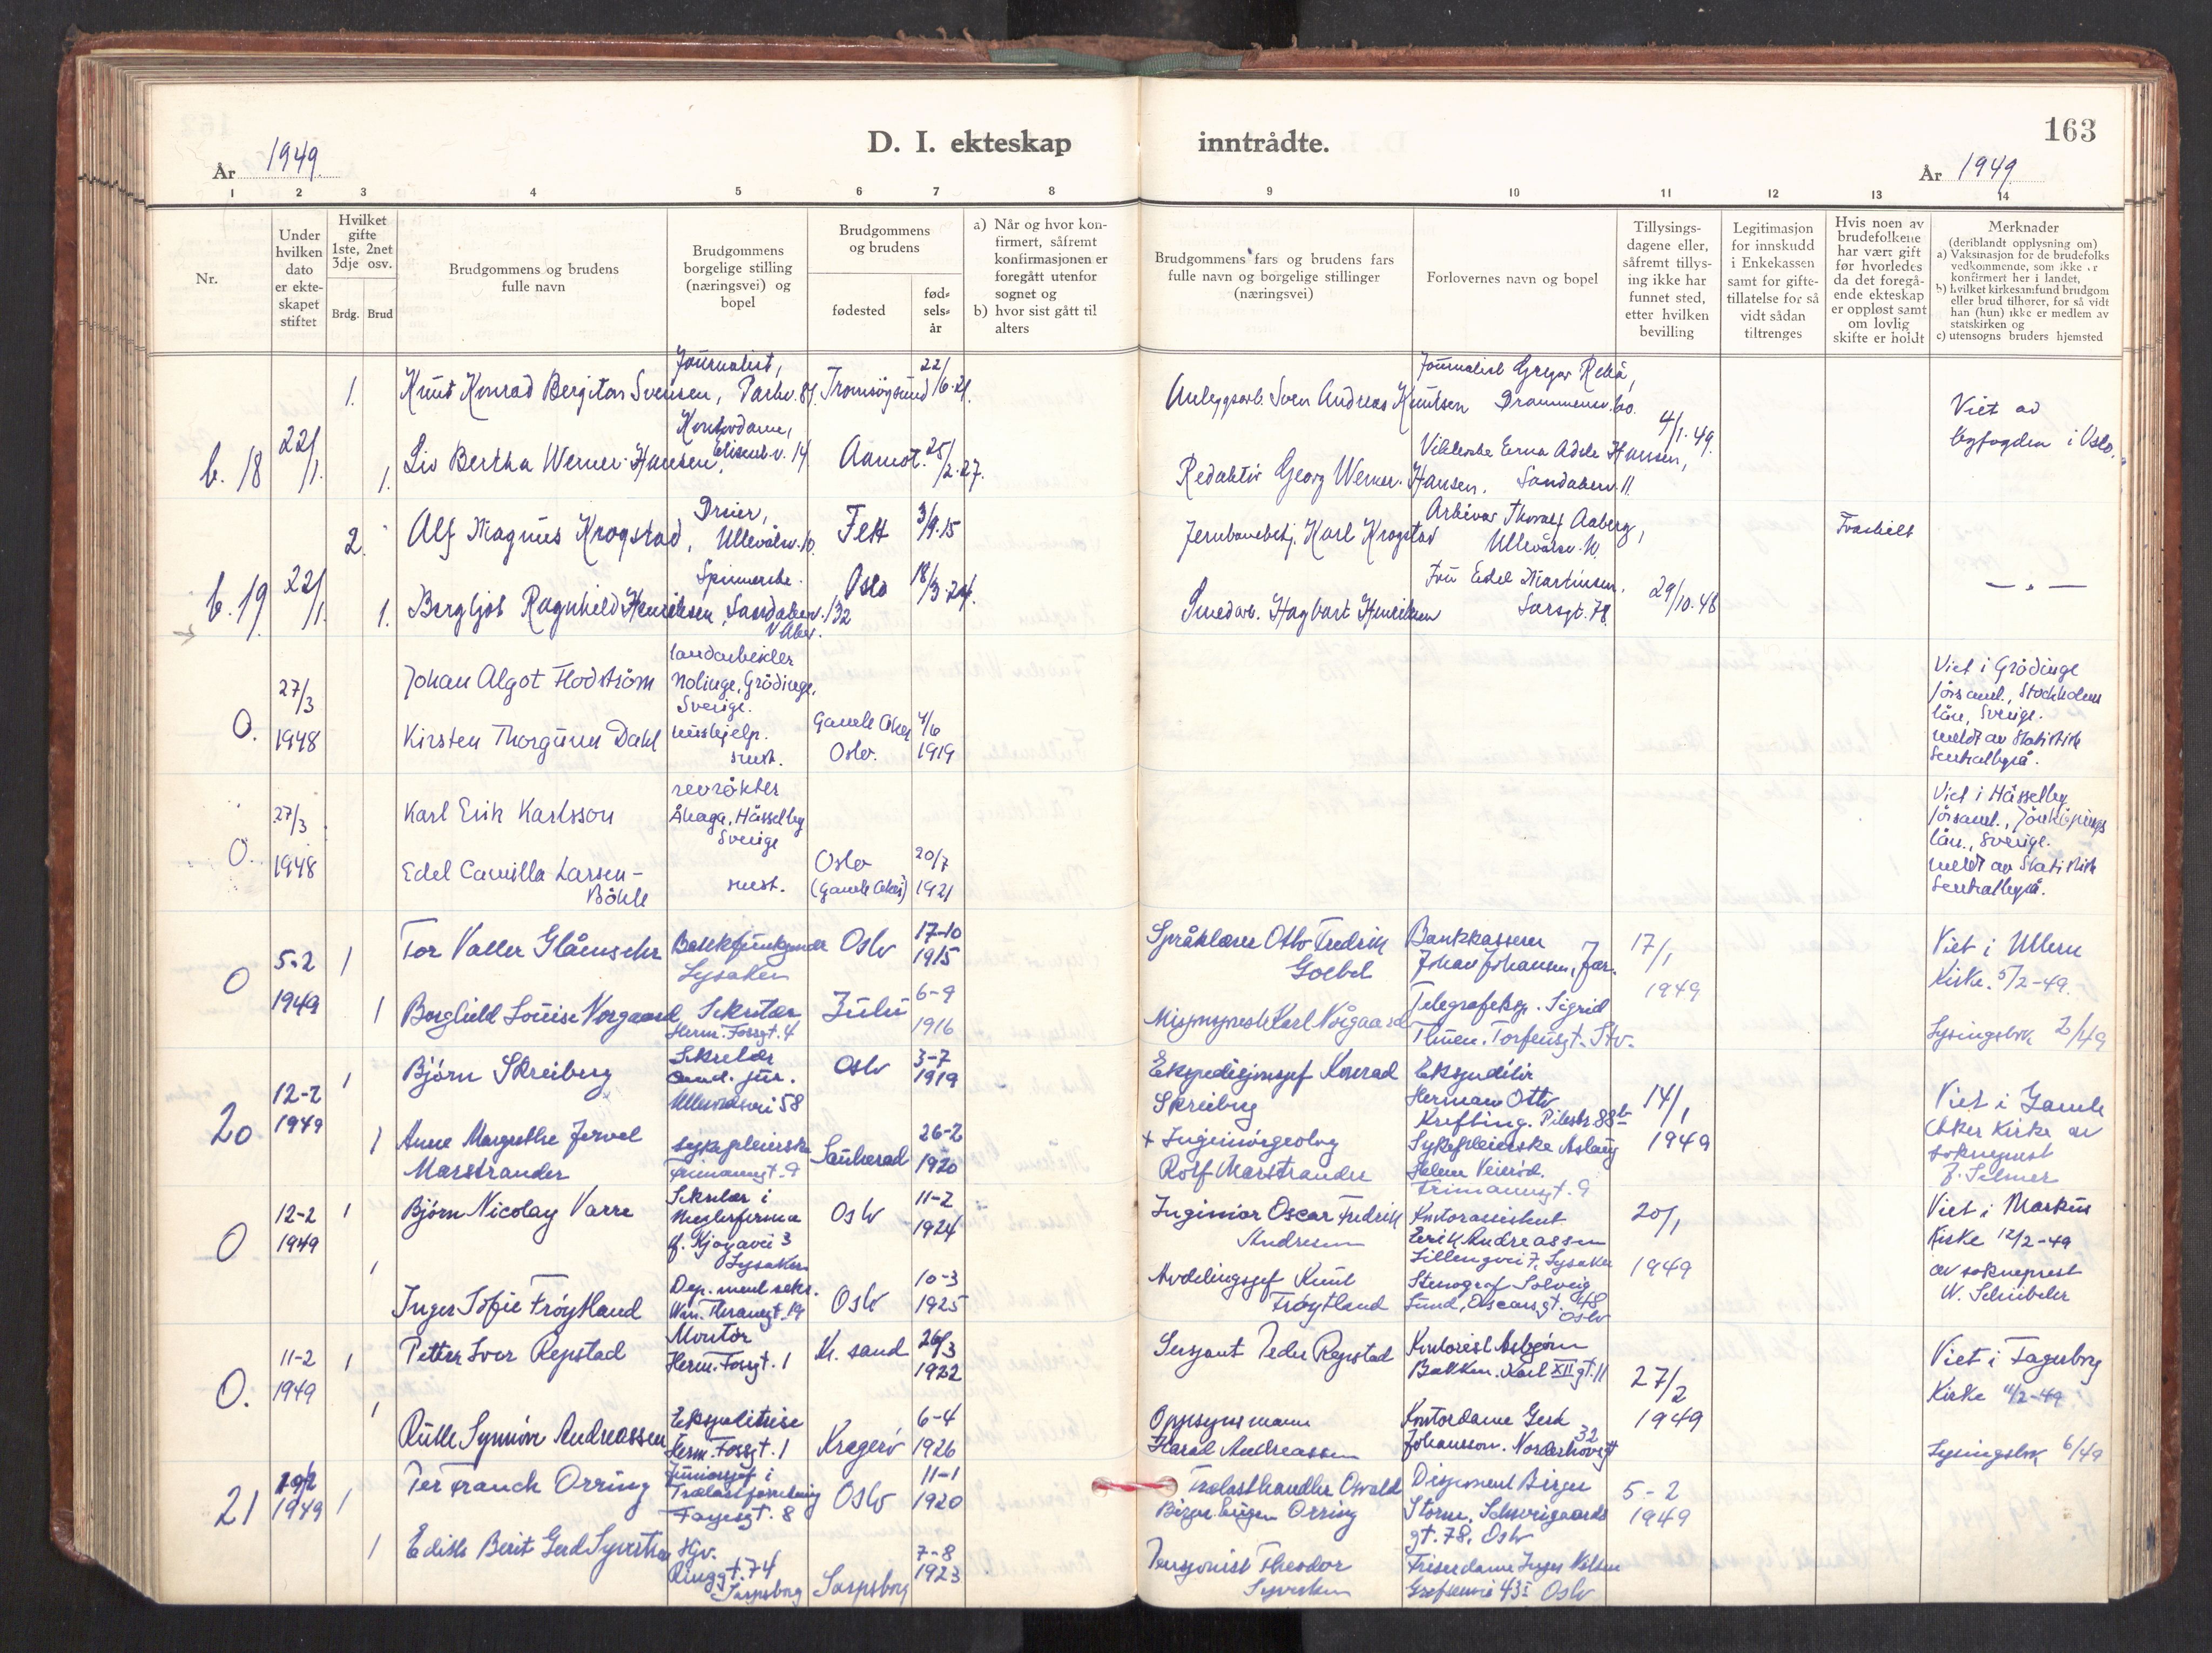 163
D. I. ekteskap inntrådte.
År 1949. År 1949
1 2 3 4 5 6 7 8 9 10 11 12 13 14
Nr.
Under
hvilken
dato
er ekte-
skapet
stiftet
Hvilket
gifte
1ste, 2net
3dje osv.
Brdg. Brud
Brudgommens og brudens
fulle navn
Brudgommens
borgelige stilling
(næringsvei) og
bopel
Brudgommens
og brudens
fødested
fød-
sels-
år
a) Når og hvor kon-
firmert, såfremt
konfirmasjonen er
foregått utenfor
sognet og
b) hvor sist gått til
alters
Brudgommens fars og brudens fars
fulle navn og borgelige stillinger
(næringsvei)
Forlovernes navn og bopel
Tillysings-
dagene eller,
såfremt tillys-
ing ikke har
funnet sted,
etter hvilken
bevilling
Legitimasjon
for innskudd
i Enkekassen
samt for gifte-
tillatelse for så
vidt sådan
tiltrenges
Hvis noen av
brudefolkene
har vært gift
før hvorledes
da det foregå-
ende ekteskap
er oppløst samt
om lovlig
skifte er holdt
Merknader
(deriblandt opplysning om)
a) Vaksinasjon for de brudefolks
vedkommende, som ikke er
konfirmert her i landet,
b) hvilket kirkesamfund brudgom
eller brud tilhører, for så vidt
han (hun) ikke er medlem av
statskirken og
c) utensogns bruders hjemsted
b. 18 22/1.
1. Knut Konrad Bergiton Svensen, Journalist, Parkv. 84. Tromsøysund 22/6.21.
Anleggsarb. Sven Andreas Knutsen
Journalist Gregar Rekå,
Drammensv. 60.
4/1.49.
Viet av
byfogden i Oslo.
1. Liv Bertha Werner-Hansen, Kontordame, Elisenb.v. 14. Aamot. 25/2.27.
Redaktør Georg Werner-Hansen.
Erna Adele Hansen,
Sandakerv. 11.
b. 19. 22/1.
2. Alf Magnus Krogstad, Ullevålsv. 10. Fett 3/9.15
Jernbanebetj. Karl Krogstad
Arkivar Thoralf Aaberg,
Ullevålsv. 10
Fraskilt
1. Bergljot Ragnhild Henriksen, Spinnerske. Sandakerv. 132
V. Aker.
Oslo 18/3.24.
Smedarb. Hagbart Henriksen
Fru Edel Martinsen,
Sarsgt. 78.
29/10.48
— " —
O. 27/3 1948
Johan Algot Flodström
landarbeider
Nolinge, Grödinge,
Sverige.
Kirsten Thorgunn Dahl
hushjelp.
smst.
Gamle Aker
Oslo.
4/6
1919
Viet i Grödinge
församl., Stockholms
län, Sverige.
meldt av Statistisk
Sentralbyrå.
O. 27/3 1948
Karl Erik Karlsson
revrökter
Åhaga, Hässelby
Sverige
Edel Camilla Larsen-
Böhle
smst.
Oslo
(Gamle Aker)
20/7
1921
Viet i Hässelby
församl., Jönköpings
län., Sverige.
meldt av Statistisk
Sentralbyrå.
O 5-2 1949
1 Tor Valler Glåmseter
Lysaker
Oslo
17-10
1915
Språklærer Otto Fredrik
Goebel
Bankkasserer
Johan Johansen, Jar.
17/1
1949
Viet i Ullern
Kirke. 5/2-49.
1 Borghild Louise Norgaard
Sekretær
Herm. Fossgt. 4
Zulu
6-9
1916
Misjonsprest Karl Norgaard
Telegrafeksp. Sigrid
Lysingsbok 2/49
20 12-2 1949
1 Bjørn Skreiberg
Sekretær
cand. jur.
Oslo
3-7
1919
Ekspedisjonssjef Konrad
Skreiberg
Ekspeditør
Herman Otto
Krefting. Pilestr. 88b
14/1
1949
Viet i Gamle
Aker Kirke av
sokneprest
F. Selmer
1 Anne Margrethe Jervel
Marstrander
sykepleierske
Frimannsgt. 9
Sauherad
26-2
1920
+ Ingeniørgeolog
Rolf Marstrander
Sykepleierske Aslaug
Helene Veierød.
Frimannsgt. 9
O 12-2 1949
1 Bjørn Nicolay Varre
Sekretær i
meglerfirma
Lysaker
Oslo
11-2
1924
Ingeniør Oscar Fredrik
Andresen
Kontorassistent
Erik Andreassen
Lillengvei 7, Lysaker
20/1
1949
Viet i Markus
Kirke 12/2-49
av sokneprest
W. Schübeler
1 Inger Sofie Frøytland
Oslo
10-3
1925
Avdelingssjef Knut
Frøytland
Stenograf Solveig
Lund, Oscarsgt. 48
Oslo
O. 11-2 1949
1 Petter Ivar Repstad
Montør
Herm. Fossgt. 1
Kr. sand
26/3
1922
Sersjant Peder Repstad
Kontorist Asbjørn
Bakken. Karl XII gt. 11
27/2
1949
Viet i Fagerborg
Kirke 11/2-49.
1 Ruth Synnøve Andreassen
Ekspeditrise
Herm. Fossgt. 1
Kragerø
6-4
1926
Oppsynsmann
Harald Andreassen
Kontordame Gerd
Johansson. Norderhovgt 32
Lysingsbok 6/49
21 19/2 1949
1 Per Franck Orring
Juniorsjef i
Trelastforretning
Fagesgt. 8
Oslo
11-1
1920
Trelasthandler Osvald
Birger Eugen Orring
Disponent Birger
Storm, Schweigaards
gt. 78, Oslo
5-2
1949
1 Edith Berit Gerd Syversten
Hjv.
Ringgt. 74
Sarpsborg
Sarpsborg
7-8
1923
Pensjonist Theodor
Syversten
Friserdame Inger Nilsen
Grefsenvei 43I Oslo